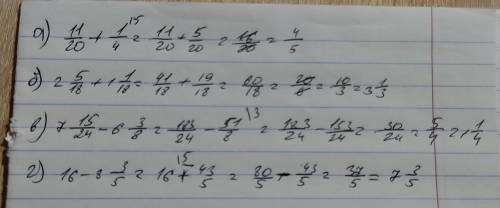 а) 11/20 + 1/4 ¹⁵ = 11/20 + 5/20 = 16/20 = 4/5
б) 2 5/18 + 1 1/18 = 41/18 + 19/18 = 60/18 = 20/6 = 10/3 = 3 1/3
в) 7 15/24 - 6 3/8 = 183/24 - 51/8 ¹³ = 183/24 - 153/24 = 30/24 = 5/4 = 1 1/4
г) 16 - 8 3/5 = 16 ¹⁵ - 43/5 = 80/5 - 43/5 = 37/5 = 7 3/5